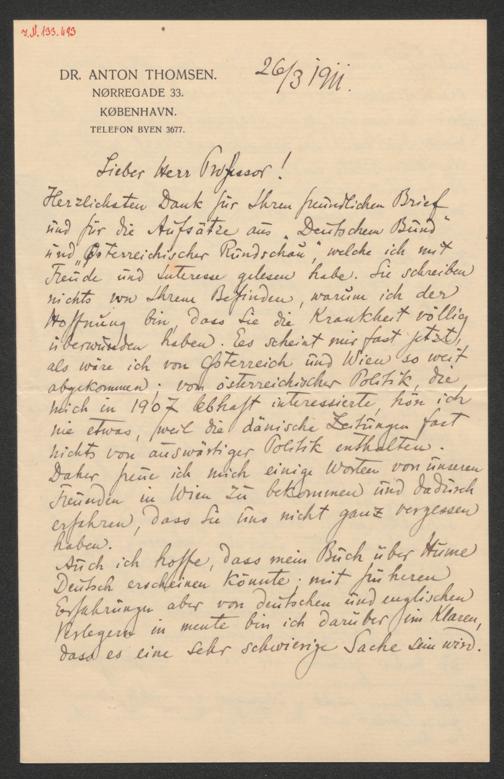 J.N. 193.493
DR. ANTON THOMSEN.
NØRREGADE 33.
KØBENHAVN.
TELEFON BYEN 3677.
26/3 1911.
Lieber Herr Professor!
Herzlichsten Dank für Ihren freundlichen Brief
und für die Aufsätze aus „Deutschem Bund"
und „Österreichischer Rundschau", welche ich mit
Freude und Interesse gelesen habe. Sie schreiben
nichts von Ihrem Befinden, warum ich der
Hoffnung bin, dass Sie die Krankheit völlig
überwunden haben. Es scheint mir fast jetzt,
als wäre ich von Österreich und Wien so weit
abgekommen; von österreichischer Politik, die
mich in 1907 lebhaft interessierte, hör ich
nie etwas, weil die dänische Zeitungen fast
nichts von auswärtiger Politik enthalten.
Daher freue ich mich einige Worten von unseren
Freunden in Wien zu bekommen und dadurch
erfahren, dass Sie uns nicht ganz vergessen
haben.
Auch ich hoffe, dass mein Buch über Hume
Deutsch erscheinen könnte; mit früheren
Erfahrungen aber von deutschen und englischen
Verlegern in mente bin ich darüber im Klaren,
dass es eine sehr schwierige Sache sein wird.